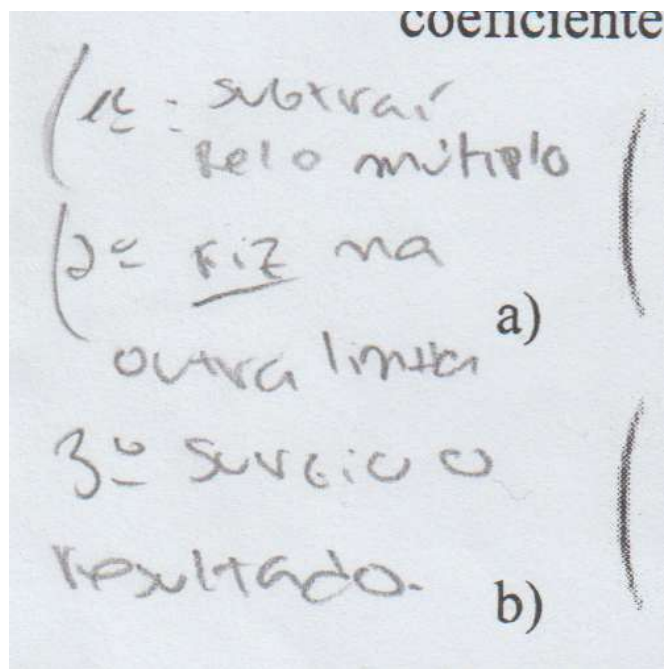 coeficiente
1º: subtraí
pelo múltiplo
2º Fiz na
a)
outra linha
3º surgiu o
resultado.
b)